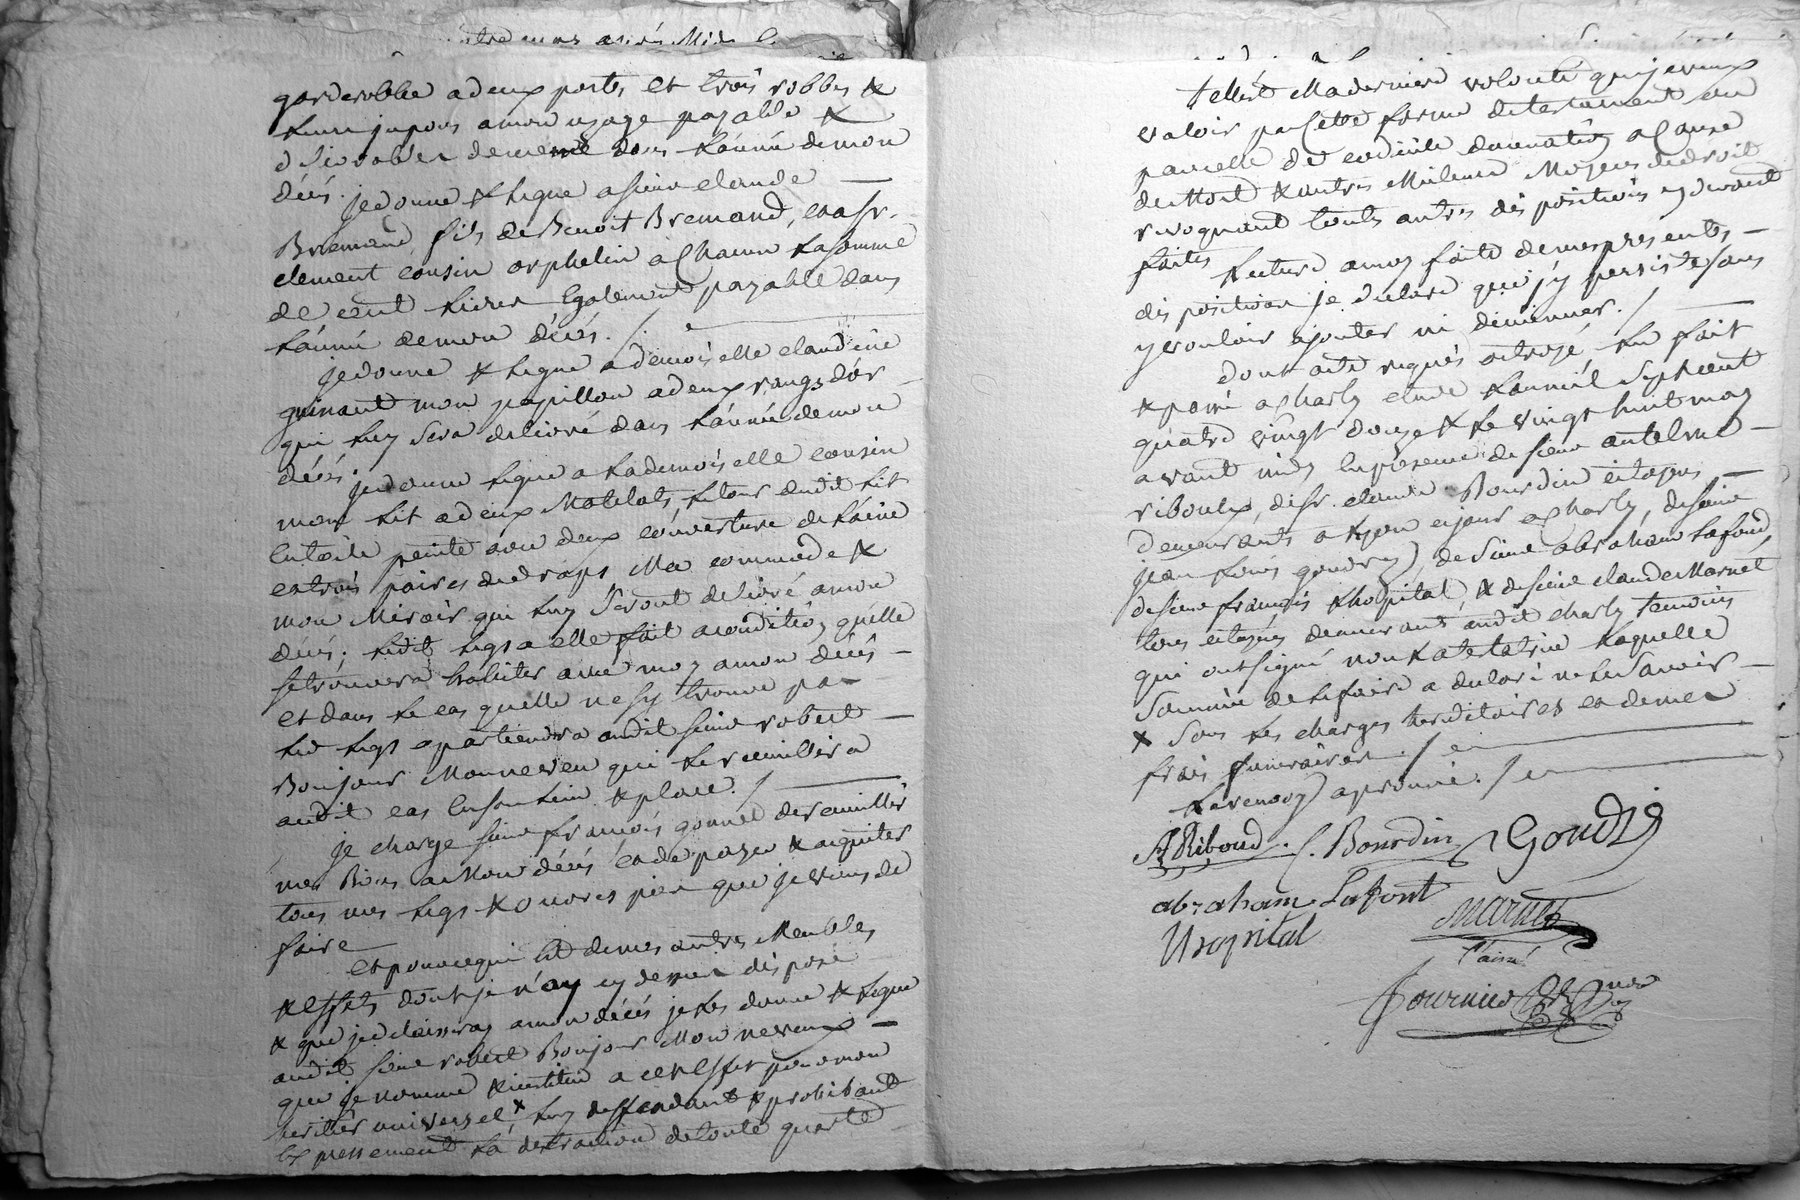 garderobbe a deux portes et trois robbes &
leurs jupons a mon usage payable &
delivrables de meme dans l'année de mon
décés.
je donne & legue a sieur claude
Bremand, fils de Benoit Bremand, et a sr.
clement cousin orphelin a chacun la somme
de cent livres Egalement payable dans
l'année de mon décés./.
je donne & legue a demoiselle claudine
guinant mon papillon a deux rangs d'or
qui luy sera delivré dans l'année de mon
décés
je donne legue a la demoiselle cousin
mon lit a deux Matelats, le tour dudit lit
en toile peinte avec deux couverture de laine
et trois paires de draps Ma commode &
mon Miroir qui luy seront delivré a mon
décés; ledit legs a elle fait a condition qu'elle
se trouvera habiter avec moy a mon décés
et dans le cas qu'elle ne s'y trouve pas
led legs apartiendra audit sieur robert
Bonjour Mon neveu qui le recueillira
audit cas en son lieu & place./
je charge sieur françois gonnet de recueillir
mes Biens a Mon décés et de payer & aquiter
tous mes legs & œuvres pies que je viens de
faire
Et pour ce qui est de mes autres Meubles
& effets dont je n'ay cy dessus disposé
& que je delaisseray a mon décés je les donne & legue
audit sieur robert Bonjour Mon neveux
que je nomme & institue a cet effet pour mon
heritier universel x luy deffendant & prohibant
Expressement la detraction de toute quarte
telle est Ma derniere volonté que je veux
valoir par cette forme de testament ou
par celle de codicile donnation a Cause
de Mort & autres Meilleurs Moyens de droit
revoquant toutes autres dispositions cy devant
faites
Lecture a moy faite de mes presentes
disposition je declare que j'y persiste sans
y vouloir ajouter ni diminuer./
dont acte requis octroyé, lu fait
& passé a charly etude l'an mil sept cent
quatre vingt douze & le vingt huit may
avant midy En presence de sieur antelme
riboulx, de sr. claude Bourdin citoyens
demeurants a Lyon ejour a charly, de sieur
jean Louis goudry, de sieur abraham Lafond,
de sieur françois Lhopital, & de sieur claude Marnet
tous citoyens demeurant audit charly temoins
qui ont signé non la testatrice laquelle
sommée de le faire a declaré ne le savoir
x sous les charges hereditaires et de mes
frais funeraires./
Le renvoy aprouvé./
A Riboud. C. Bourdin Goudry
abraham Lafont
Marnet
Lhopital
L'ainé
fournier